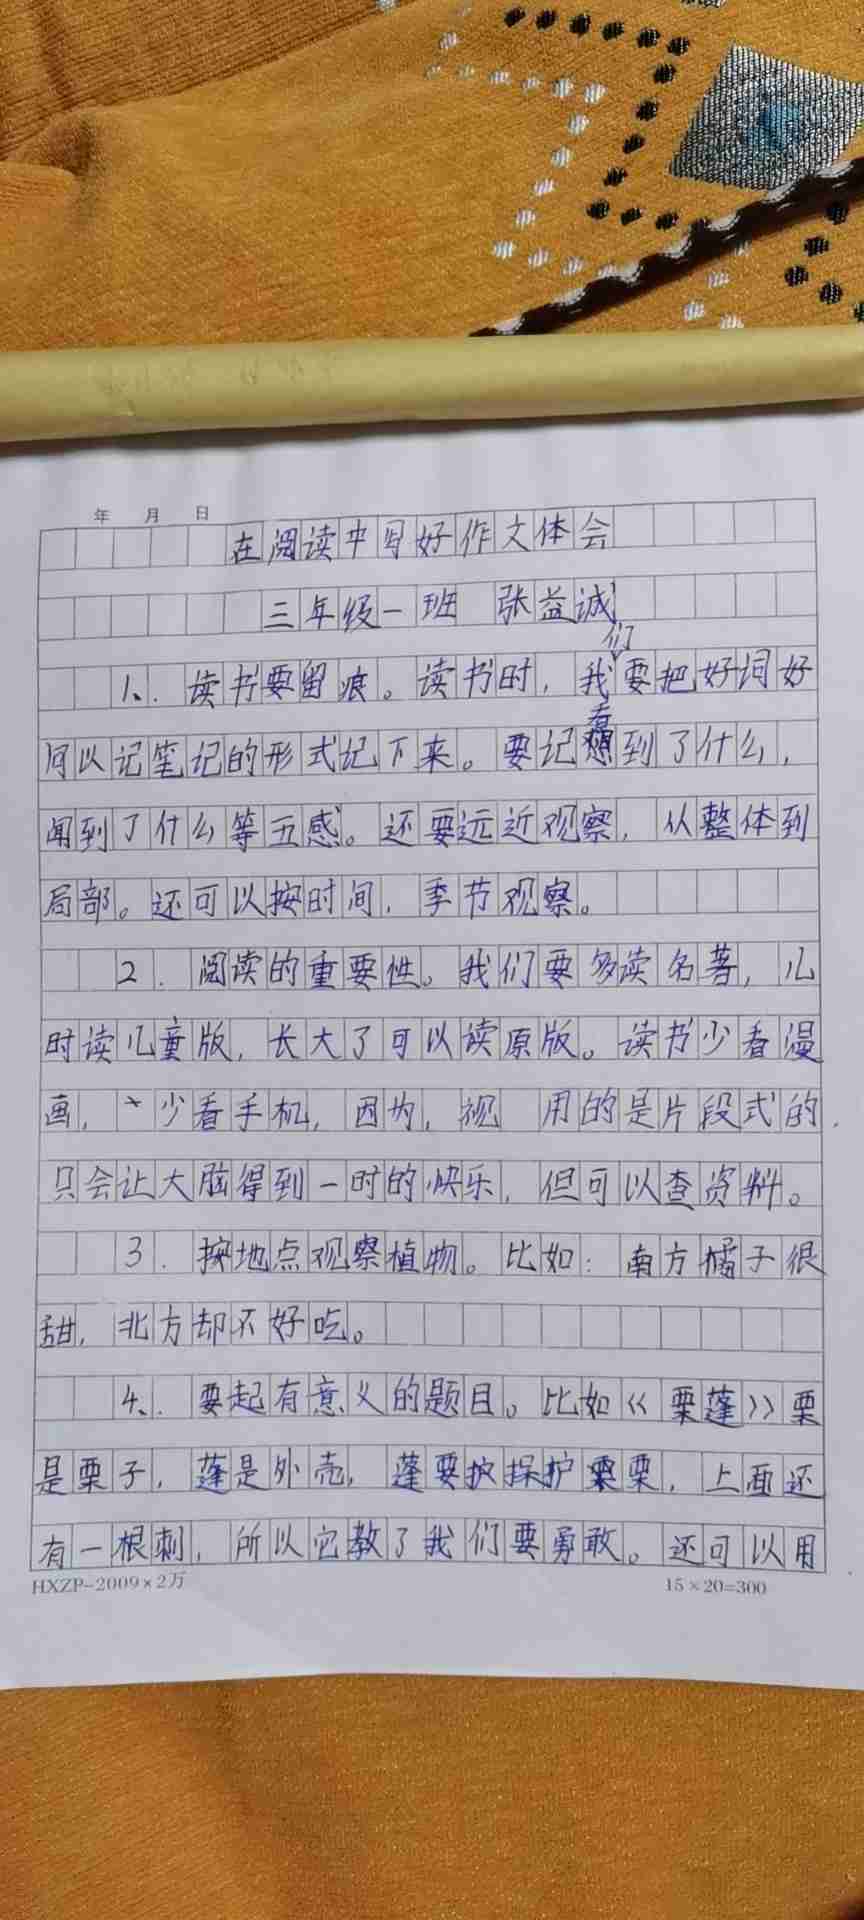 年 月 日
在阅读中写好作文体会
三年级一班 张益诚
1、. 读书要留痕。读书时，我们要把好词好
句以记笔记的形式记下来。要记看到了什么，
闻到了什么等五感。还要远近观察，从整体到
局部。还可以按时间，季节观察。
2. 阅读的重要性。我们要多读名著，儿
时读儿童版，长大了可以读原版。读书少看漫
画，少看手机，因为，视 用的是片段式的，
只会让大脑得到一时的快乐，但可以查资料。
3. 按地点观察植物。比如：南方橘子很
甜，北方却不好吃。
4、. 要起有意义的题目。比如《栗蓬》栗
是栗子，蓬是外壳，蓬要护保护栗，上面还
有一根刺，所以它教了我们要勇敢。还可以用
HXZP-2009×2万
15×20=300